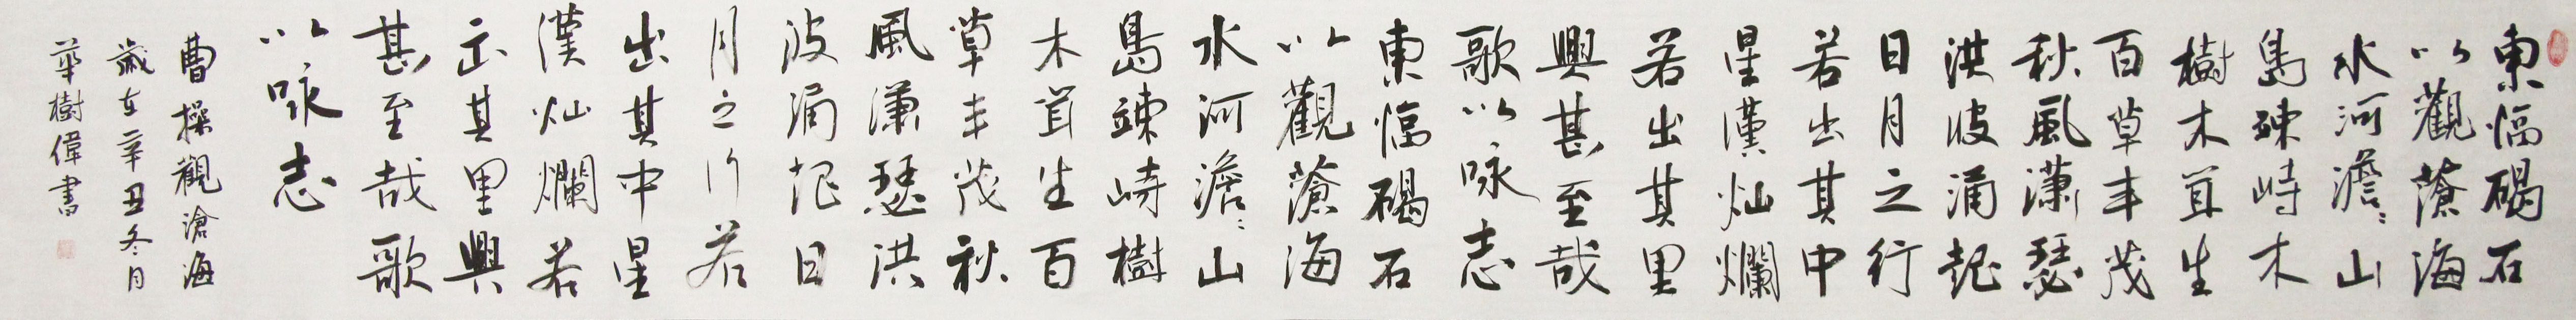 東臨碣石
以觀滄海
水河澹々山
島竦峙木
樹木茸生
百草丰茂
秋風潇瑟
洪波涌起
日月之行
若出其中
星漢灿爛
若出其里
興甚至哉
歌以咏志
東臨碣石
以觀滄海
水河澹々山
島竦峙樹
木茸生百
草丰茂秋
風潇瑟洪
波涌起日
月之行若
出其中星
漢灿爛若
出其里興
甚至哉歌
以咏志
曹操觀滄海
歲在辛丑冬月
華樹偉書